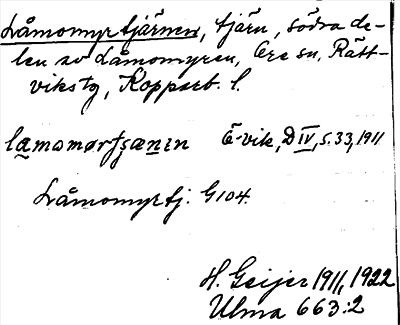 Låmomyrtjärnen, tjärn, södra de-
len av Låmomyren, Ore sn, Rätt-
viks tg, Kopparb. l.
lamomørtʃænın E-vik, D IV, s. 33, 1911
Låmomyrtj. G104.
H. Geijer 1911, 1922
Ulma 663:2